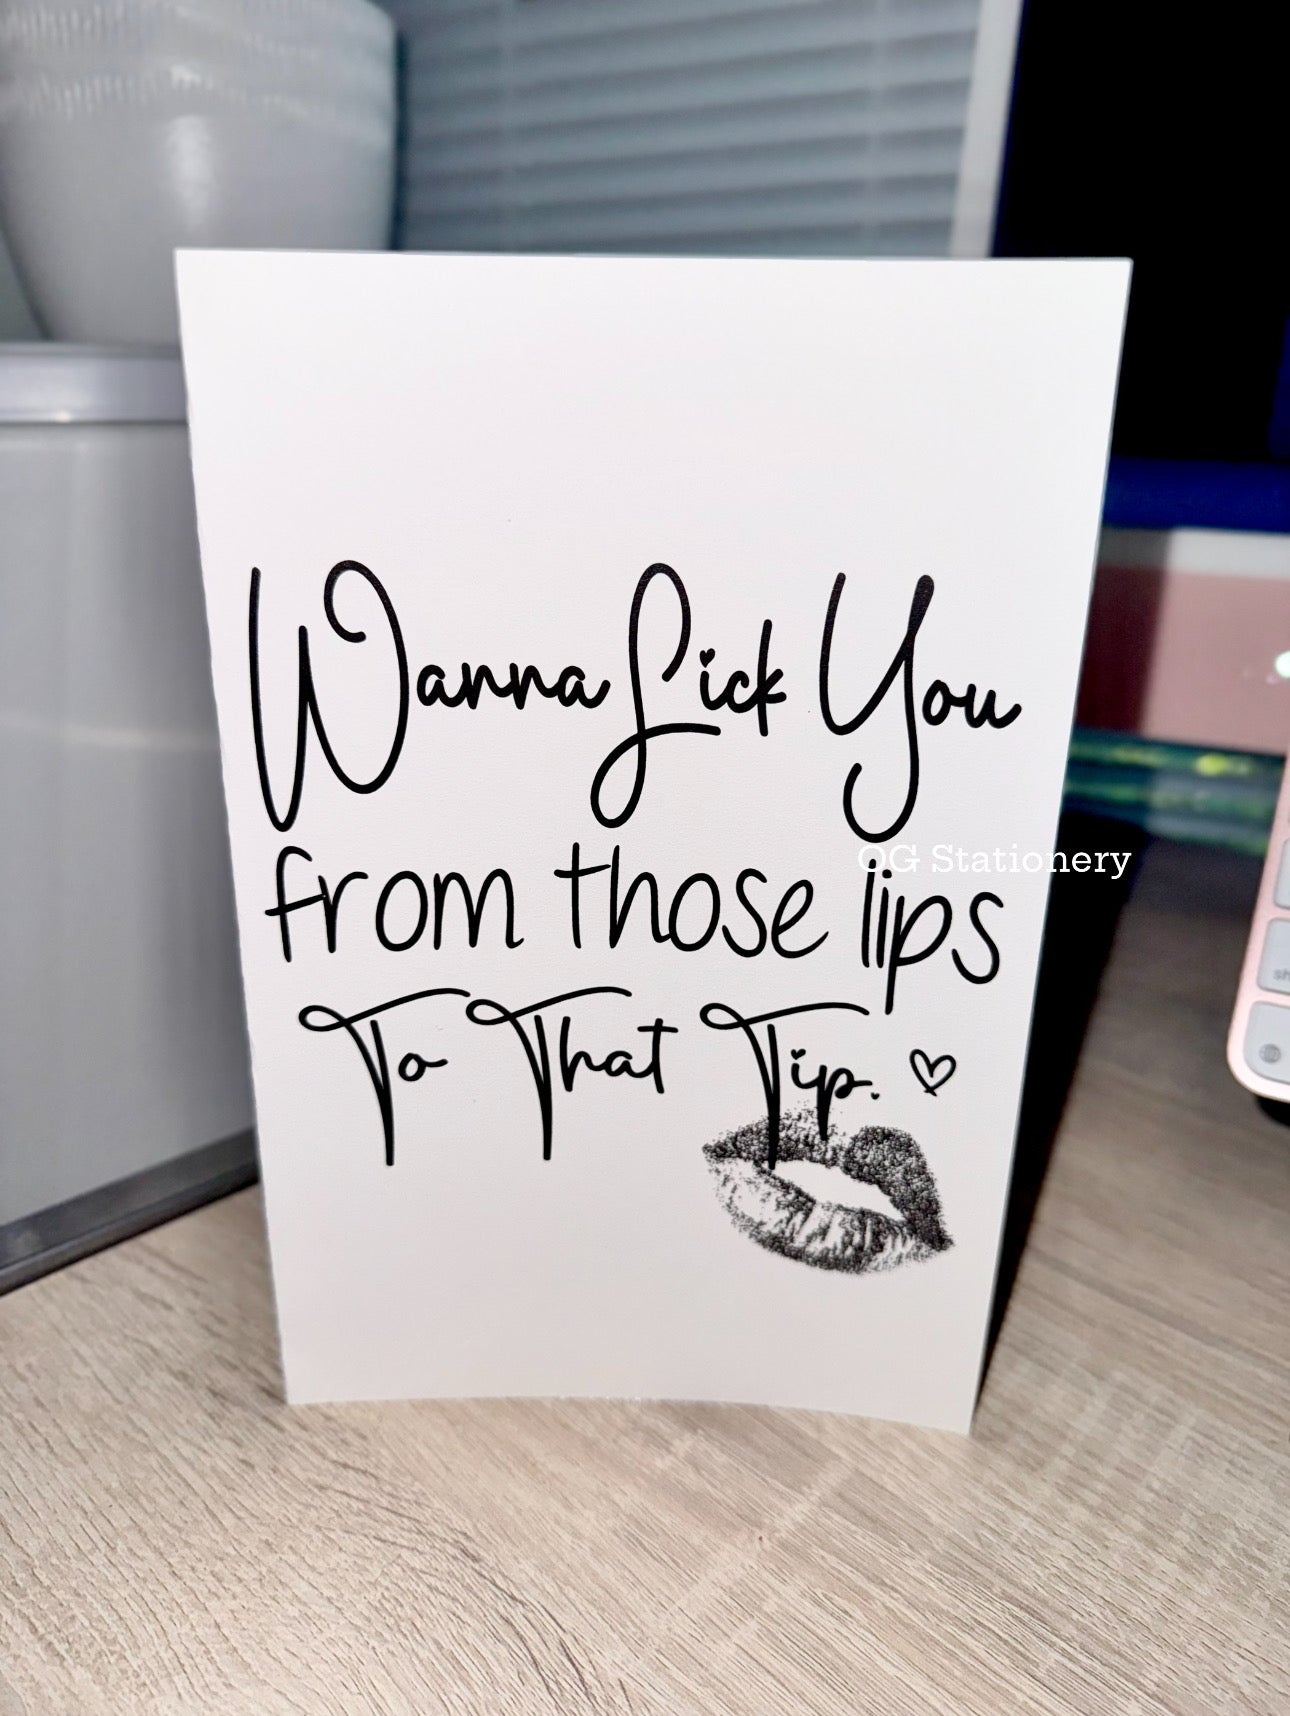 Wanna Lick You
from those lips
To That Tip.
OG Stationery